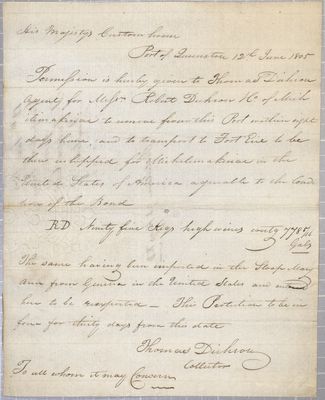 His Majestys Custom house
Port of Queenston 12th June 1805
Permission is hereby given to Thomas Dickson
Agent for Messrs Robert Dickson & Co of Mich
ilimakinac to remove from this Port within eight
days hence, and to transport to Fort Erie to be
there reshipped for Michilimakinac in the
United States of America agreeable to the Condi
tion of the Bond
RD Ninety five Kegs high wines conty 778
Galls
The same having been imported in the Sloop Mary
Ann from Geneva in the United States and
here to be reexported — This Protection to be in
force for thirty days from this date
Thomas Dickson
Collector
To all whom it may Concern